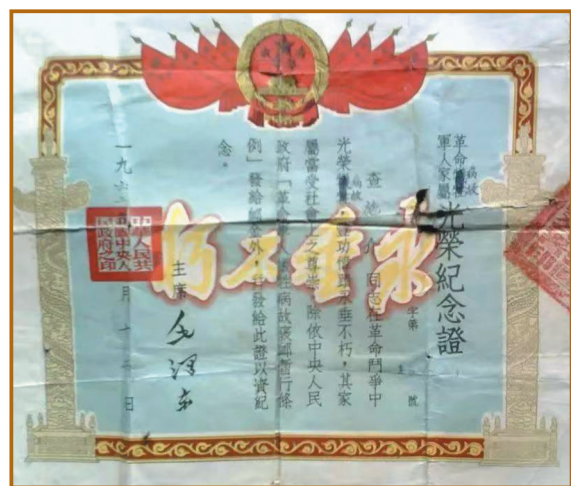 革命病故
軍人家屬光榮紀念證
字第 號
查 同志在革命鬥爭中
光榮病故 豐功偉績永垂不朽，其家
屬當受社會上之尊崇。除依中央人民
政府「革命軍人犧牲病故褒卹暫行條
例」發給卹金外，並發給此證以資紀
念。
主席 毛澤东
一九六 月十二日
中華人民共
和國中央人
民政府之印
永垂不朽